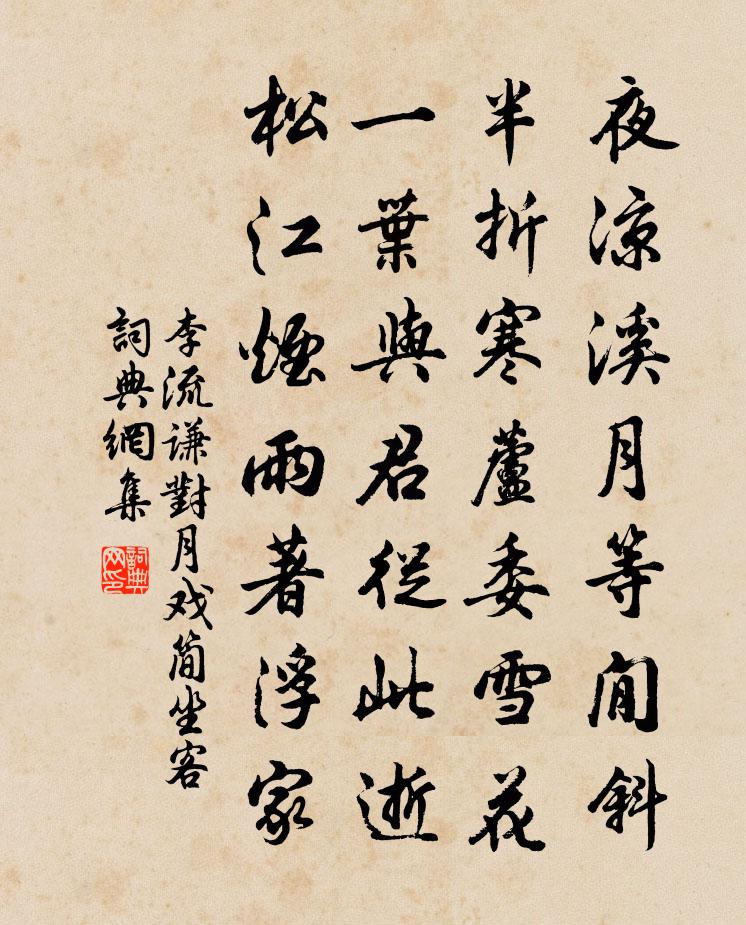 夜凉溪月等閒斜
半折寒蘆委雪花
一葉與君從此逝
松江煙雨著浮家
李流谦對月戏简坐客
詞典網集
詞典网印